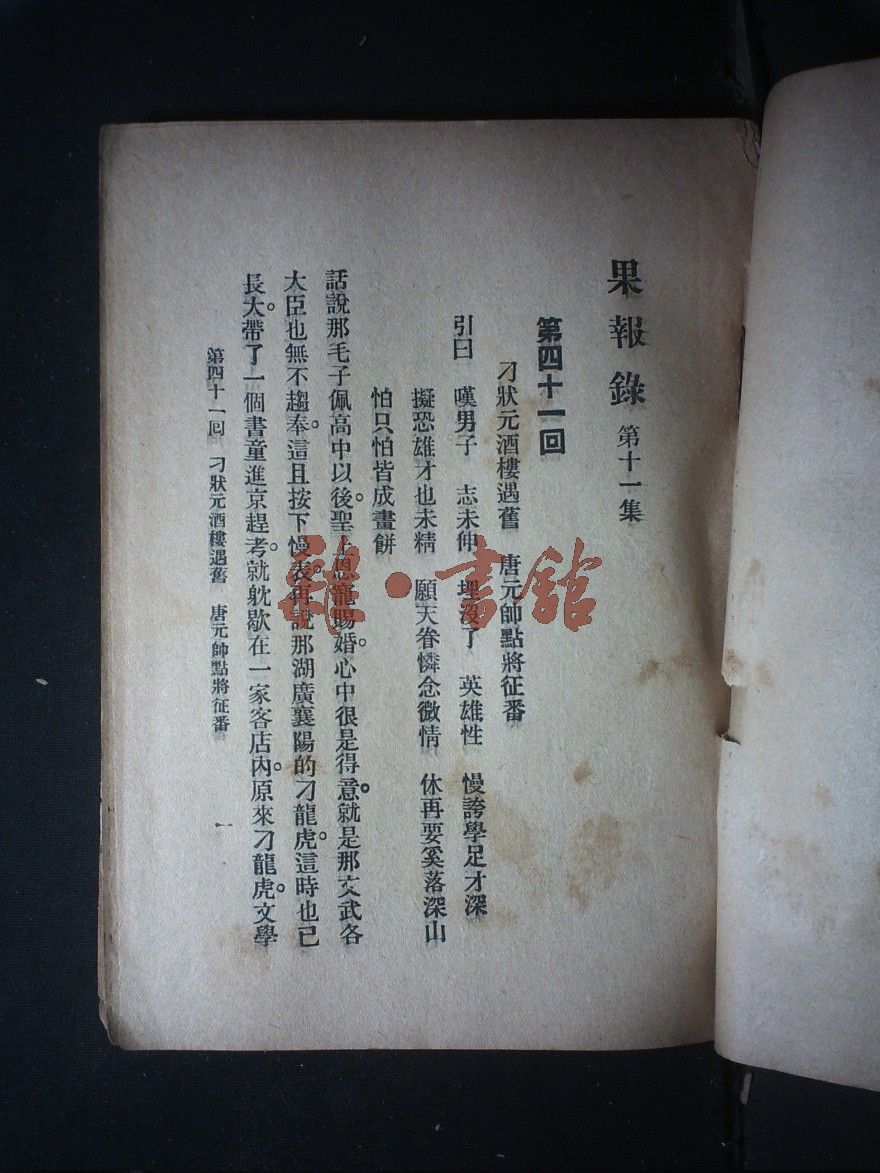 果報錄 第十一集
第四十一回
刁狀元酒樓遇舊 唐元帥點將征番
引曰 嘆男子 志未伸 埋沒了 英雄性 慢誇學足才深
擬恐雄才也未精 願天眷憐念微情 休再要奚落深山
怕只怕皆成畫餅
話說那毛子佩高中以後。聖上恩寵賜婚。心中很是得意。就是那文武各
大臣也無不趨奉。這且按下慢表。再說那湖廣襄陽的刁龍虎。這時也已
長大。帶了一個書童進京趕考。就躭歇在一家客店內。原來刁龍虎文學
第四十一回 刁狀元酒樓遇舊 唐元帥點將征番 一
雜·書館